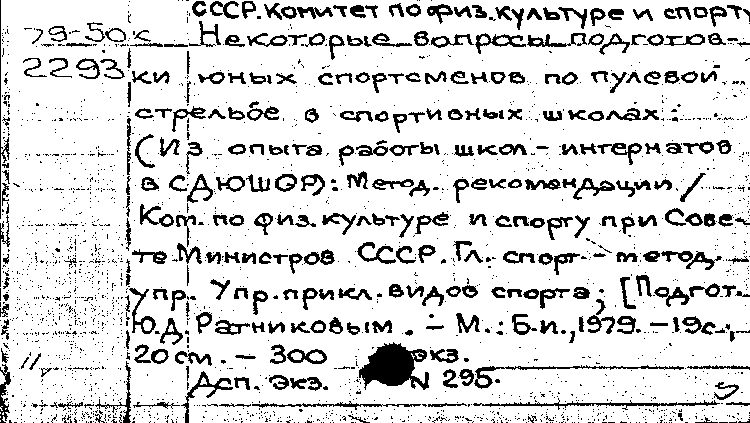 СССР. Комитет по физ. культуре и спорту
79-50к Некоторые вопросы подготов-
2293 ки юных спортсменов по пулевой
стрельбе в спортивных школах:
(Из опыта работы школ-интернатов
в СДЮШОР): Метод. рекомендации /
Ком. по физ. культуре и спорту при Сове-
те Министров СССР. Гл. спорт.-метод.
упр. Упр. прикл. видов спорта; [Подгот.
Ю.Д. Ратниковым. - М.: Б.и., 1979. - 19с.,
20см. - 300 экз.
Дсп. Экз. N 295.